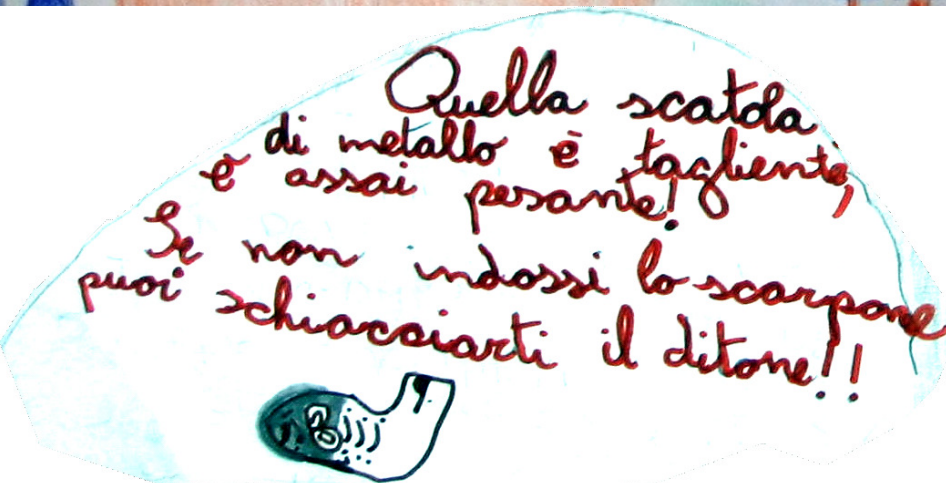 Quella scatola
di metallo è tagliente,
e assai pesante!
Se non indossi lo scarpone
puoi schiacciarti il ditone!!